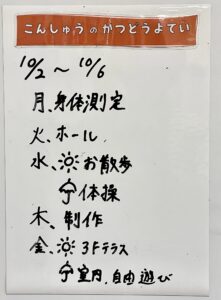 こんしゅうのかつどうよてい
10/2～10/6
月、身体測定
火、ホール
水、☀お散歩
☂体操
木、制作
金、☀3Fテラス
☂室内、自由遊び